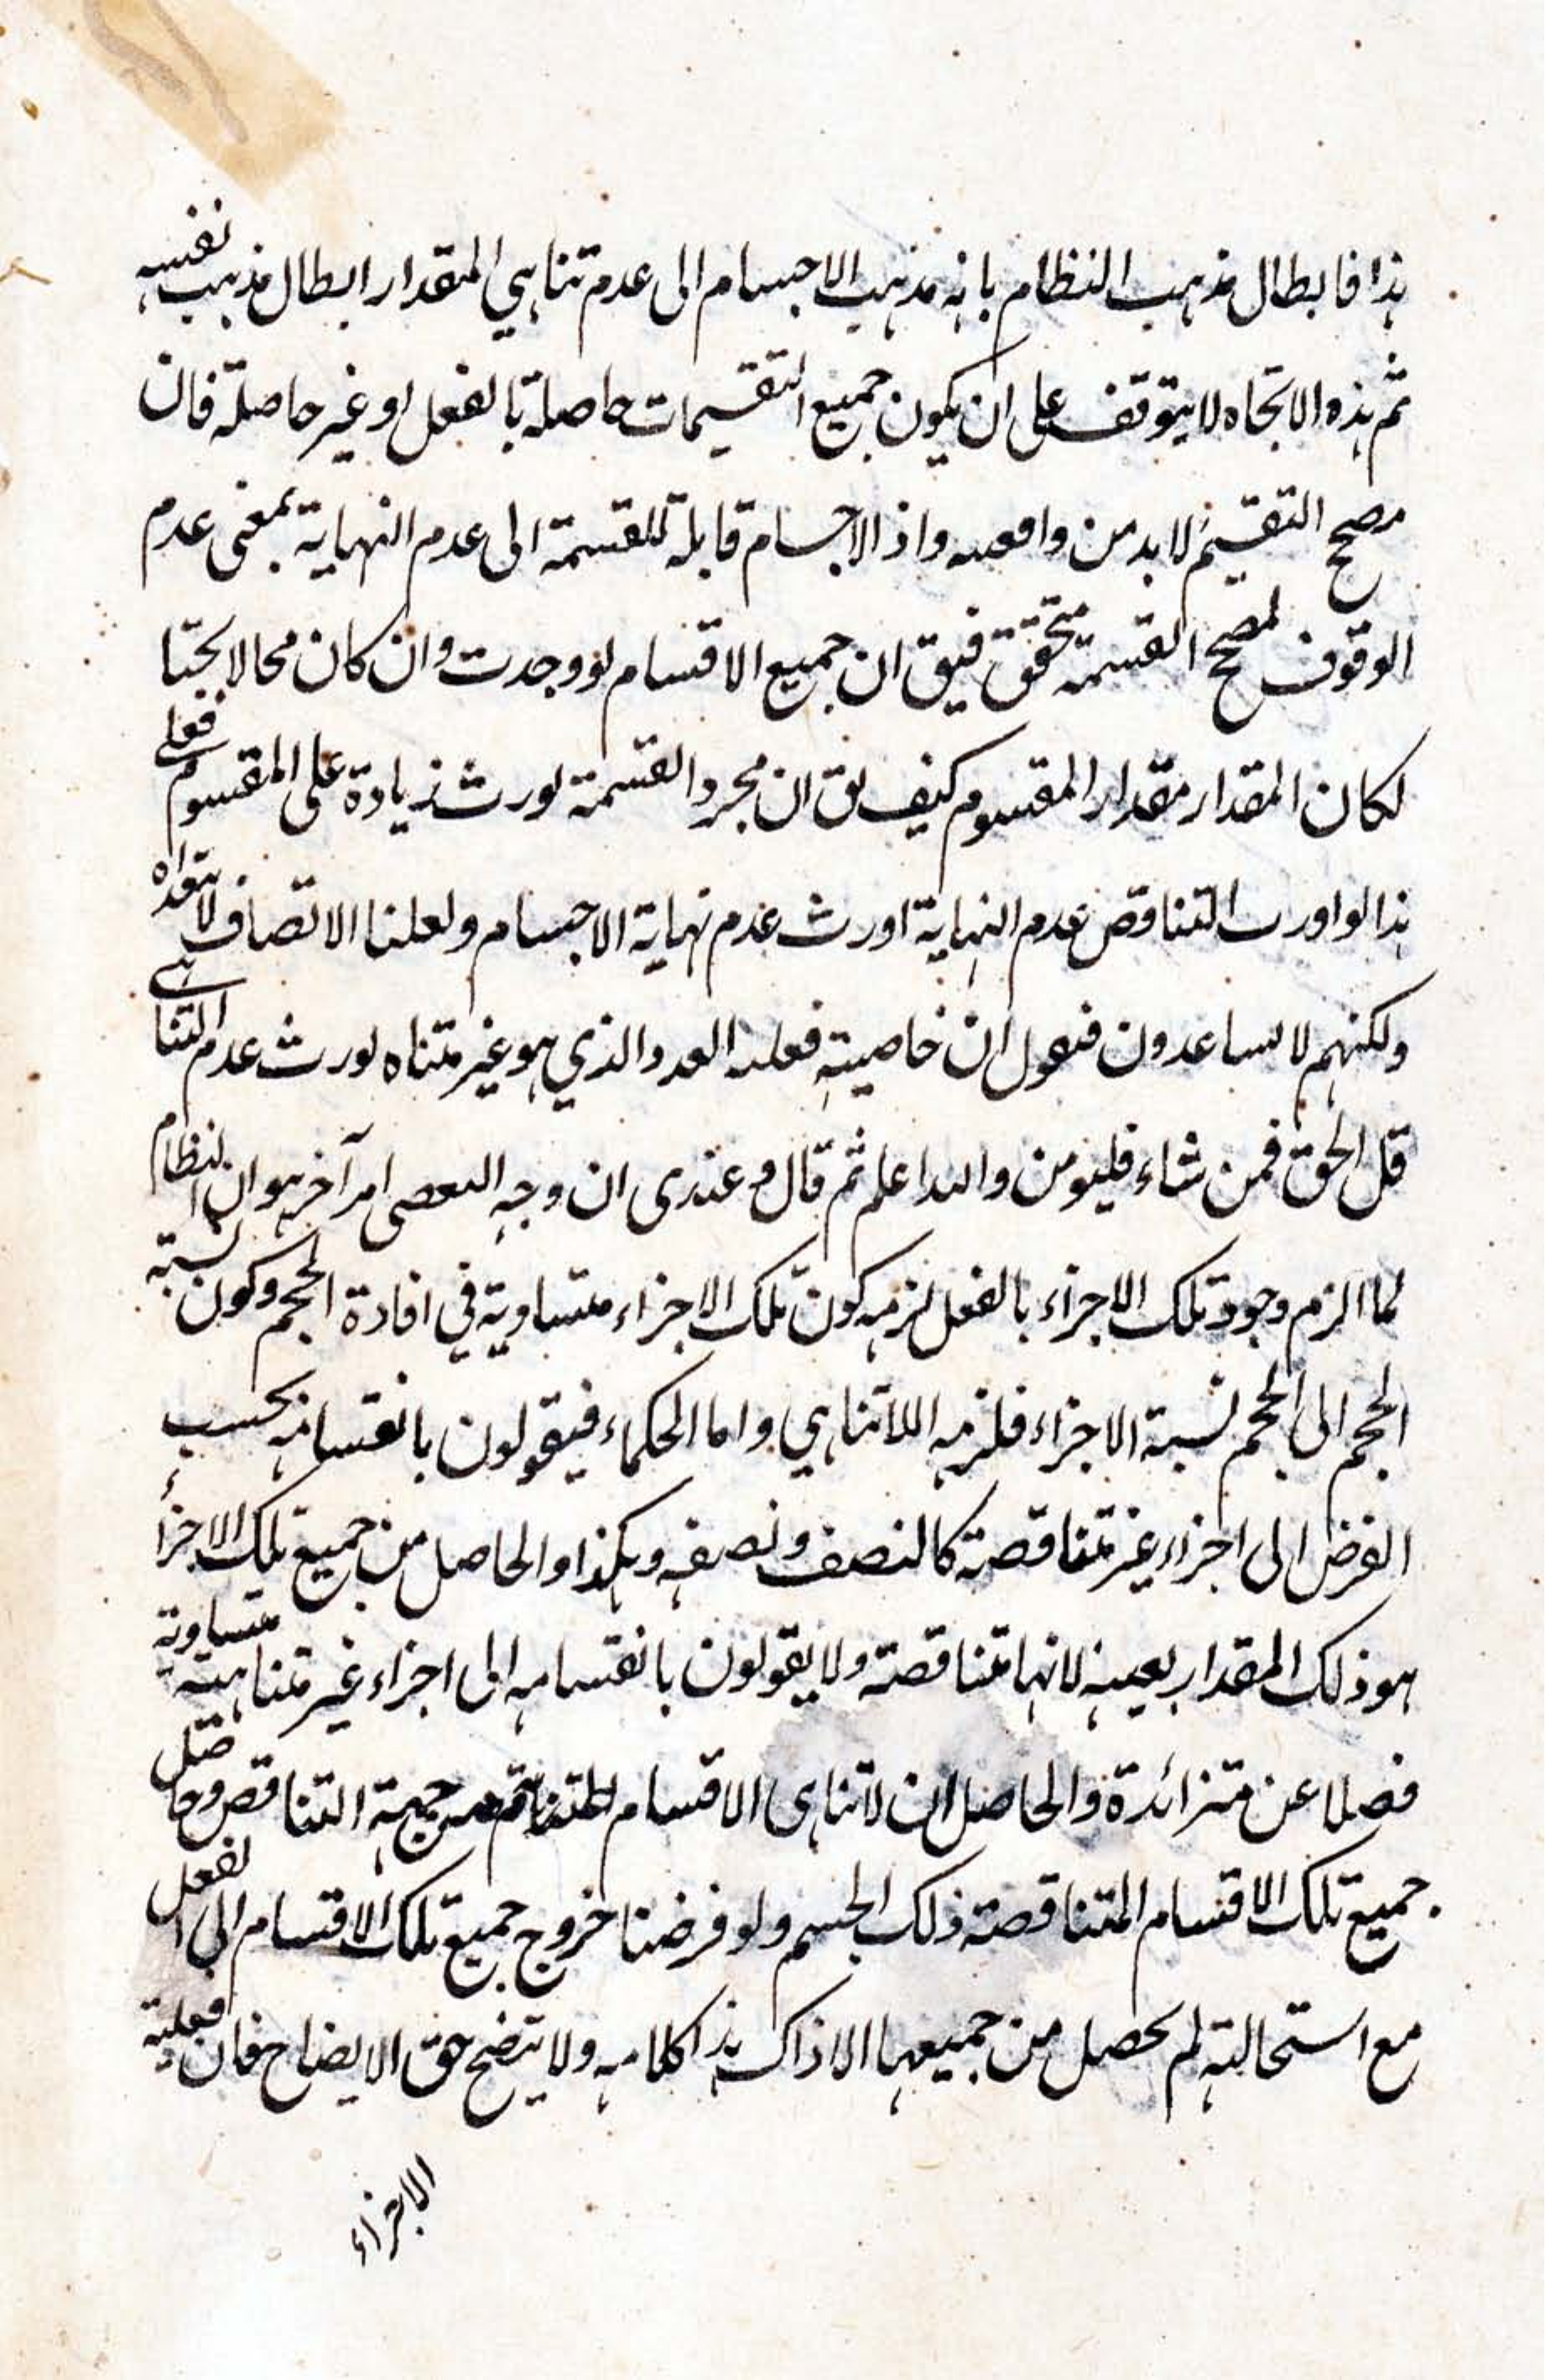 هذا فابطال مذهب النظام بانه مذهب الاجسام الى عدم تناهي المقدار ابطال مذهب نفسه
ثم هذه الاتجاه لا يتوقف على ان يكون جميع التقسيمات حاصلة بالفعل او غير حاصلة فان
مصحح التقسيم لابد من واذ الاجسام قابلة للقسمة الى عدم النهاية بمعنى عدم
الوقوف لمصحح القسمة متحقق فيق ان جميع الاقسام لو وجدت وان كان محالا
لكان المقدار مقدار المقسوم كيف يق ان مجرد القسمة يورث زيادة على المقسوم فعلى
هذا لو اورث التناقص عدم النهاية اورث عدم نهاية الاجسام ولعلنا الاتصاف لا نتعداه
ولكنهم لا يساعدون فنقول ان خاصية فعلية العدد الذي هو غير متناه يورث عدم التناهي
قل الحق فمن شاء فليؤمن والله اعلم ثم قال م وعندى ان وجه التفصى امر آخر هو ان النظام
لما الزم وجود تلك الاجزاء بالفعل لزمه كون تلك الاجزاء متساوية في افادة الحجم وكون نسبة
الحجم الى الحجم نسبة الاجزاء فلزمه اللاتناهي واما الحكماء فيقولون بانقسامه بحسب
الفرض الى اجزاء غير متناقصة كالنصف ونصفه وهكذا والحاصل من جميع تلك الاجزاء
هو ذلك المقدار بعينه لانها متناقصة ولا يقولون بانقسامه الى اجزاء غير متناهية متساوية
فضلا عن متزائدة والحاصل ان لاتناهى الاقسام من جهة التناقص وحاصل
جميع تلك الاقسام المتناقصة ذلك الجسم ولو فرضنا خروج جميع تلك الاقسام الى الفعل
مع استحالته لم يحصل من جميعها الا ذاك هذا كلامه ولا يتضح حق الايضاح فان فعلية
الاجزاء